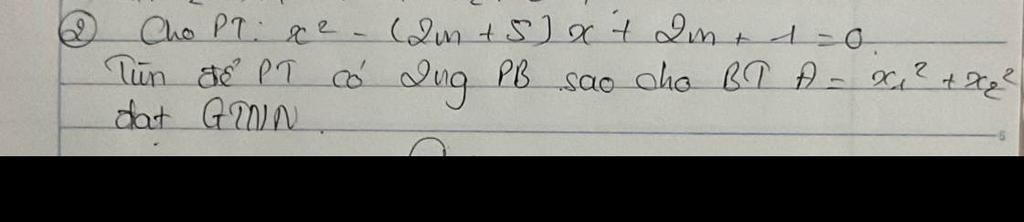 ② Cho PT: x² - (2m + 5) x + 2m + 1 = 0.
Tìm để PT có 2ng PB sao cho BT A = x₁² + x₂²
đạt GTNN.